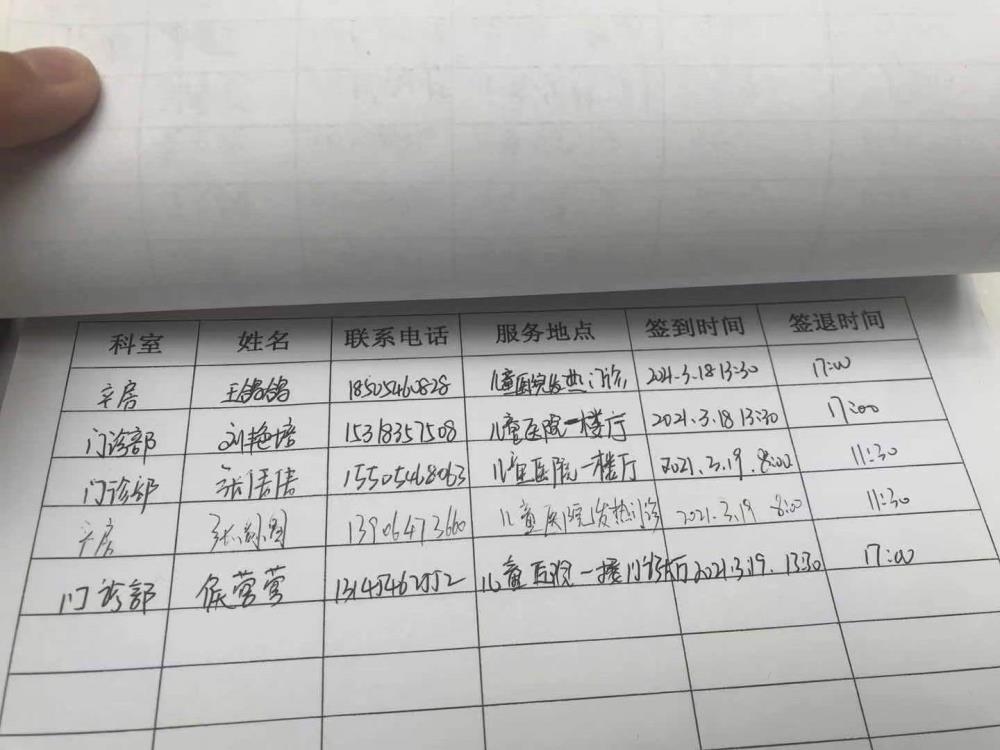 科室 姓名 联系电话 服务地点 签到时间 签退时间
房 王鸽鸽 18505460828 儿童医院发热门诊 2021.3.18 13:30 17:00
门诊部 刘艳培 15318357508 儿童医院一楼厅 2021.3.18 13:30 17:00
门诊部 张 15505468063 儿童医院一楼厅 2021.3.19. 8:00 11:30
房 张 13906473660 儿童医院发热门诊 2021.3.19 8:00 11:30
门诊部 侯营营 儿童医院一楼门诊大厅 2021.3.19. 13:30 17:00